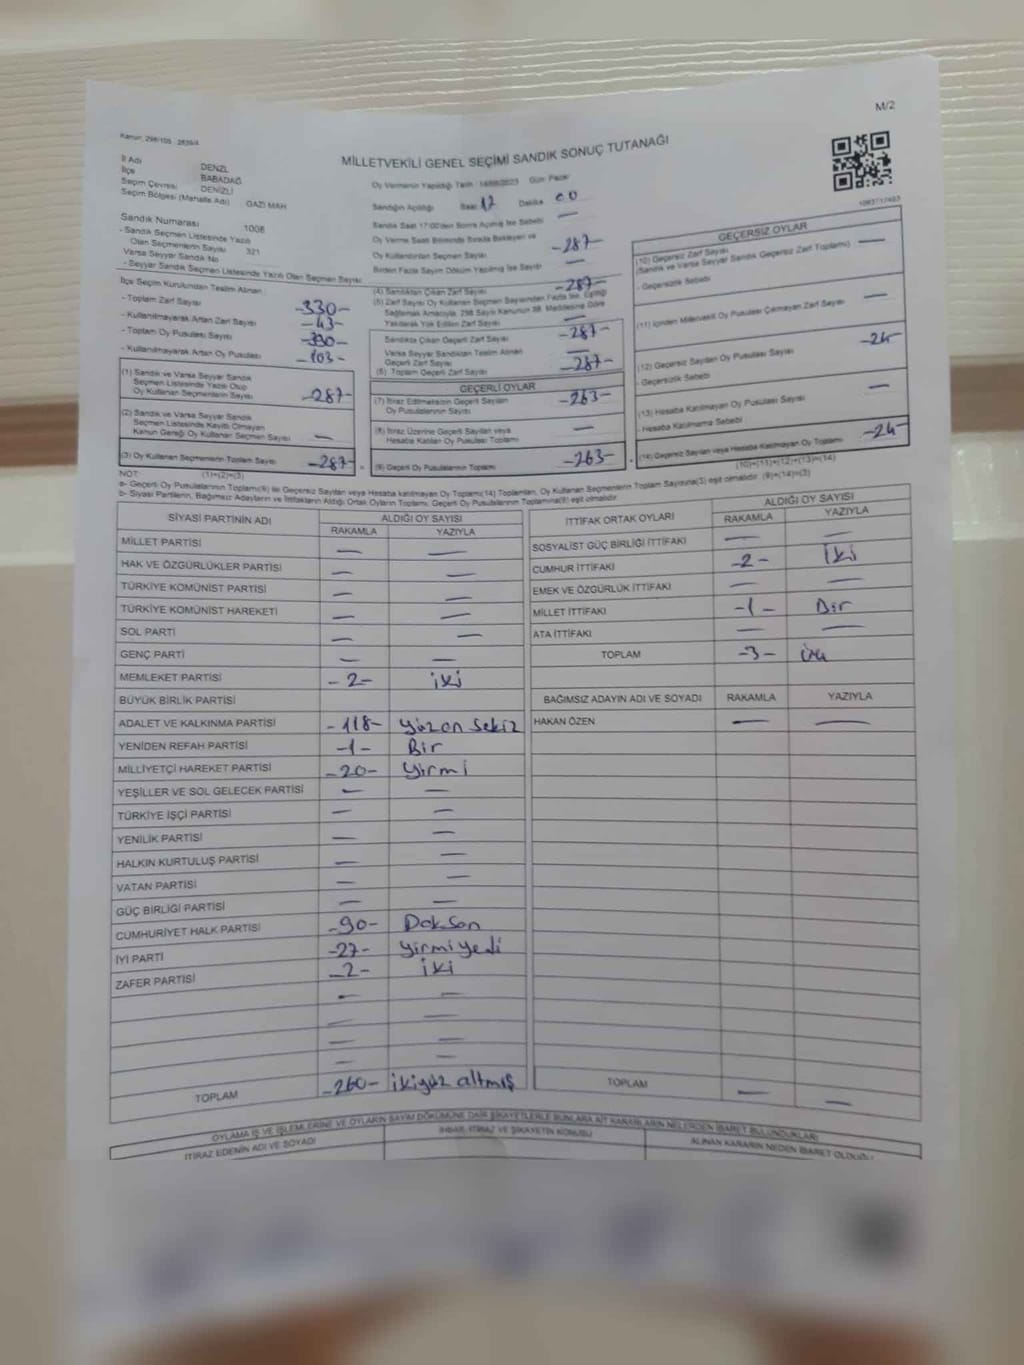 M/2
MİLLETVEKİLİ GENEL SEÇİMİ SANDIK SONUÇ TUTANAĞI
İl Adı DENZL
İlçe BABADAĞ
Seçim Çevresi DENİZLİ
Seçim Bölgesi (Mahalle Adı) GAZİ MAH
Sandık Numarası 1008
- Sandık Seçmen Listesinde Yazılı
Olan Seçmenlerin Sayısı 321
Varsa Seyyar Sandık No
- Seyyar Sandık Seçmen Listesinde Yazılı Olan Seçmen Sayısı
İlçe Seçim Kurulundan Teslim Alınan
- Toplam Zarf Sayısı -330-
- Kullanılmayarak Artan Zarf Sayısı -43-
- Toplam Oy Pusulası Sayısı -330-
- Kullanılmayarak Artan Oy Pusulası -103-
(1) Sandık ve Varsa Seyyar Sandık
Seçmen Listesinde Yazılı Olup
Oy Kullanan Seçmenlerin Sayısı -287-
(2) Sandık ve Varsa Seyyar Sandık
Seçmen Listesinde Kayıtlı Olmayan
Kanun Gereği Oy Kullanan Seçmen Sayısı —
(3) Oy Kullanan Seçmenlerin Toplam Sayısı -287-
(1)+(2)=(3)
Oy Vermenin Yapıldığı Tarih : 14/05/2023 Gün: Pazar
Sandığın Açıldığı Saat 17 Dakika 00
Sandık Saat 17:00'den Sonra Açılmış İse Sebebi —
Oy Verme Saati Bitiminde Sırada Bekleyen ve
Oy Kullandırılan Seçmen Sayısı -287-
Birden Fazla Sayım Döküm Yapılmış İse Sayısı —
(4) Sandıktan Çıkan Zarf Sayısı -287-
(5) Zarf Sayısı Oy Kullanan Seçmen Sayısından Fazla İse, Eşitliği
Sağlamak Amacıyla, 298 Sayılı Kanunun 98. Maddesine Göre
Yakılarak Yok Edilen Zarf Sayısı —
Sandıkta Çıkan Geçerli Zarf Sayısı -287-
Varsa Seyyar Sandıktan Teslim Alınan
Geçerli Zarf Sayısı —
(6) Toplam Geçerli Zarf Sayısı -287-
GEÇERLİ OYLAR
(7) İtiraz Edilmeksizin Geçerli Sayılan
Oy Pusulalarının Sayısı -263-
(8) İtiraz Üzerine Geçerli Sayılan veya
Hesaba Katılan Oy Pusulası Toplamı —
(9) Geçerli Oy Pusulalarının Toplamı -263-
GEÇERSİZ OYLAR
(10) Geçersiz Zarf Sayısı —
(Sandık ve Varsa Seyyar Sandık Geçersiz Zarf Toplamı)
- Geçersizlik Sebebi
(11) İçinden Milletvekili Oy Pusulası Çıkmayan Zarf Sayısı —
(12) Geçersiz Sayılan Oy Pusulası Sayısı -24-
- Geçersizlik Sebebi
(13) Hesaba Katılmayan Oy Pusulası Sayısı —
- Hesaba Katılmama Sebebi
(14) Geçersiz Sayılan veya Hesaba Katılmayan Oy Toplamı -24-
(10)+(11)+(12)+(13)=(14)
NOT:
a- Geçerli Oy Pusulalarının Toplamı(9) ile Geçersiz Sayılan veya Hesaba katılmayan Oy Toplamı(14) Toplamları, Oy Kullanan Seçmenlerin Toplam Sayısına(3) eşit olmalıdır. (9)+(14)=(3)
b- Siyasi Partilerin, Bağımsız Adayların ve İttifakların Aldığı Ortak Oyların Toplamı, Geçerli Oy Pusulalarının Toplamına(9) eşit olmalıdır.
SİYASİ PARTİNİN ADI ALDIĞI OY SAYISI
RAKAMLA YAZIYLA
MİLLET PARTİSİ — —
HAK VE ÖZGÜRLÜKLER PARTİSİ — —
TÜRKİYE KOMÜNİST PARTİSİ — —
TÜRKİYE KOMÜNİST HAREKETİ — —
SOL PARTİ — —
GENÇ PARTİ — —
MEMLEKET PARTİSİ -2- iki
BÜYÜK BİRLİK PARTİSİ
ADALET VE KALKINMA PARTİSİ -118- Yüz on sekiz
YENİDEN REFAH PARTİSİ -1- Bir
MİLLİYETÇİ HAREKET PARTİSİ -20- Yirmi
YEŞİLLER VE SOL GELECEK PARTİSİ — —
TÜRKİYE İŞÇİ PARTİSİ — —
YENİLİK PARTİSİ — —
HALKIN KURTULUŞ PARTİSİ — —
VATAN PARTİSİ — —
GÜÇ BİRLİĞİ PARTİSİ — —
CUMHURİYET HALK PARTİSİ -90- Doksan
İYİ PARTİ -27- Yirmi yedi
ZAFER PARTİSİ -2- iki
— —
— —
— —
— —
TOPLAM -260- ikiyüz altmış
İTTİFAK ORTAK OYLARI ALDIĞI OY SAYISI
RAKAMLA YAZIYLA
SOSYALİST GÜÇ BİRLİĞİ İTTİFAKI — —
CUMHUR İTTİFAKI -2- İki
EMEK VE ÖZGÜRLÜK İTTİFAKI — —
MİLLET İTTİFAKI -1- Bir
ATA İTTİFAKI — —
TOPLAM -3- üç
BAĞIMSIZ ADAYIN ADI VE SOYADI RAKAMLA YAZIYLA
HAKAN ÖZEN — —
TOPLAM — —
OYLAMA İŞ VE İŞLEMLERİNE VE OYLARIN SAYIM DÖKÜMÜNE DAİR ŞİKAYETLERLE BUNLARA AİT KARARLARIN NELERDEN İBARET BULUNDUKLARI
İTİRAZ EDENİN ADI VE SOYADI
İHBAR, İTİRAZ VE ŞİKAYETİN KONUSU
ALINAN KARARIN NEDEN İBARET OLDUĞU